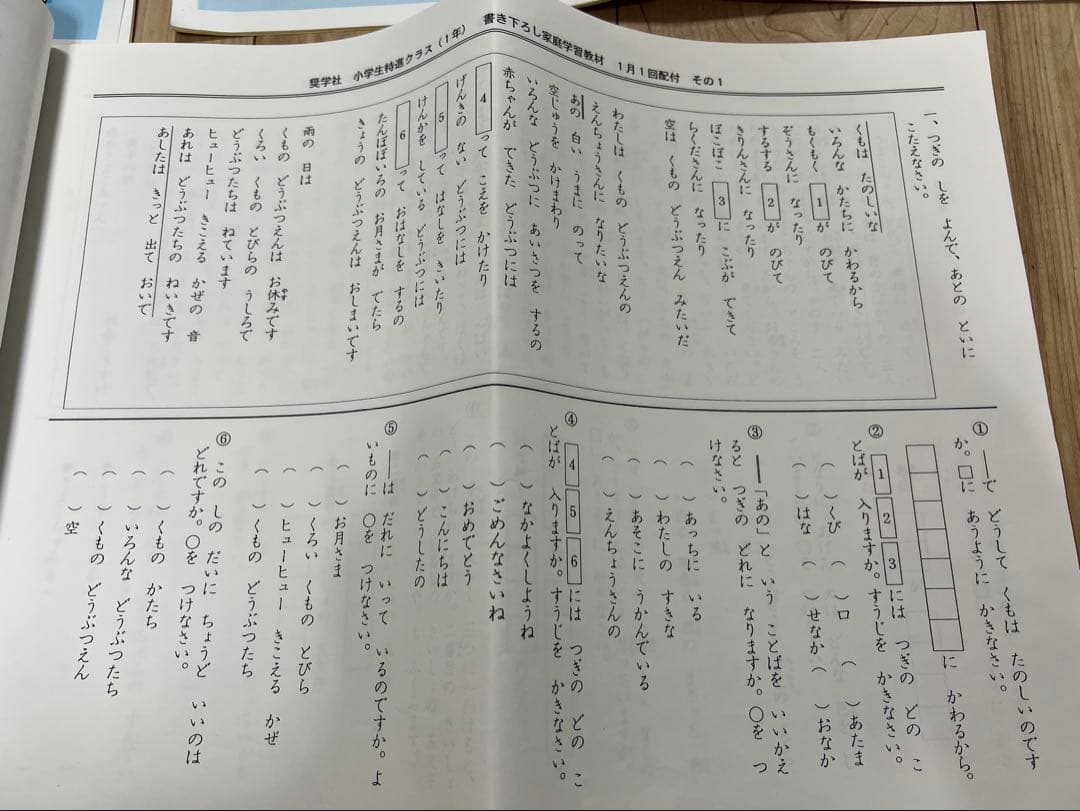 奨学社　小学生特進クラス（1年）　書き下ろし家庭学習教材　1月1回配付　その1
一、つぎの　しを　よんで、あとの　といに
こたえなさい。
くもは　たのしいな
いろんな　かたちに　かわるから
もくもく　1が　のびて
ぞうさんに　なったり
するする　2が　のびて
きりんさんに　なったり
ぼこぼこ　3に　こぶが　できて
らくださんに　なったり
空は　くもの　どうぶつえん　みたいだ
わたしは　くもの　どうぶつえんの
えんちょうさんに　なりたいな
あの　白い　うまに　のって
空じゅうを　かけまわり
いろんな　どうぶつに　あいさつを　するの
赤ちゃんが　できた　どうぶつには
4って　こえを　かけたり
げんきの　ない　どうぶつには
5って　はなしを　きいたり
けんかを　している　どうぶつには
6って　おはなしを　するの
たんぽぽいろの　お月さまが　でたら
きょうの　どうぶつえんは　おしまいです
雨の　日は
くもの　どうぶつえんは　お休みです
やす
くろい　くもの　とびらの　うしろで
どうぶつたちは　ねています
ヒューヒュー　きこえる　かぜの　音
あれは　どうぶつたちの　ねいきです
あしたは　きっと　出て　おいで
①　――で　どうして　くもは　たのしいのです
か。□に　あうように　かきなさい。
□□□□□□□に　かわるから。
②　1　2　3には　つぎの　どの　こ
とばが　入りますか。すうじを　かきなさい。
（　）くび　（　）口　（　）あたま
（　）はな　（　）せなか　（　）おなか
③　――「あの」と　いう　ことばを　いいかえ
ると　つぎの　どれに　なりますか。〇を　つ
けなさい。
（　）あっちに　いる
（　）わたしの　すきな
（　）あそこに　うかんでいる
（　）えんちょうさんの
④　4　5　6には　つぎの　どの　こ
とばが　入りますか。すうじを　かきなさい。
（　）なかよくしようね
（　）ごめんなさいね
（　）おめでとう
（　）こんにちは
（　）どうしたの
⑤　――は　だれに　いって　いるのですか。よ
いものに　〇を　つけなさい。
（　）お月さま
（　）くろい　くもの　とびら
（　）ヒューヒュー　きこえる　かぜ
（　）くもの　どうぶつたち
⑥　この　しの　だいに　ちょうど　いいのは
どれですか。〇を　つけなさい。
（　）くもの　かたち
（　）いろんな　どうぶつたち
（　）くもの　どうぶつえん
（　）空